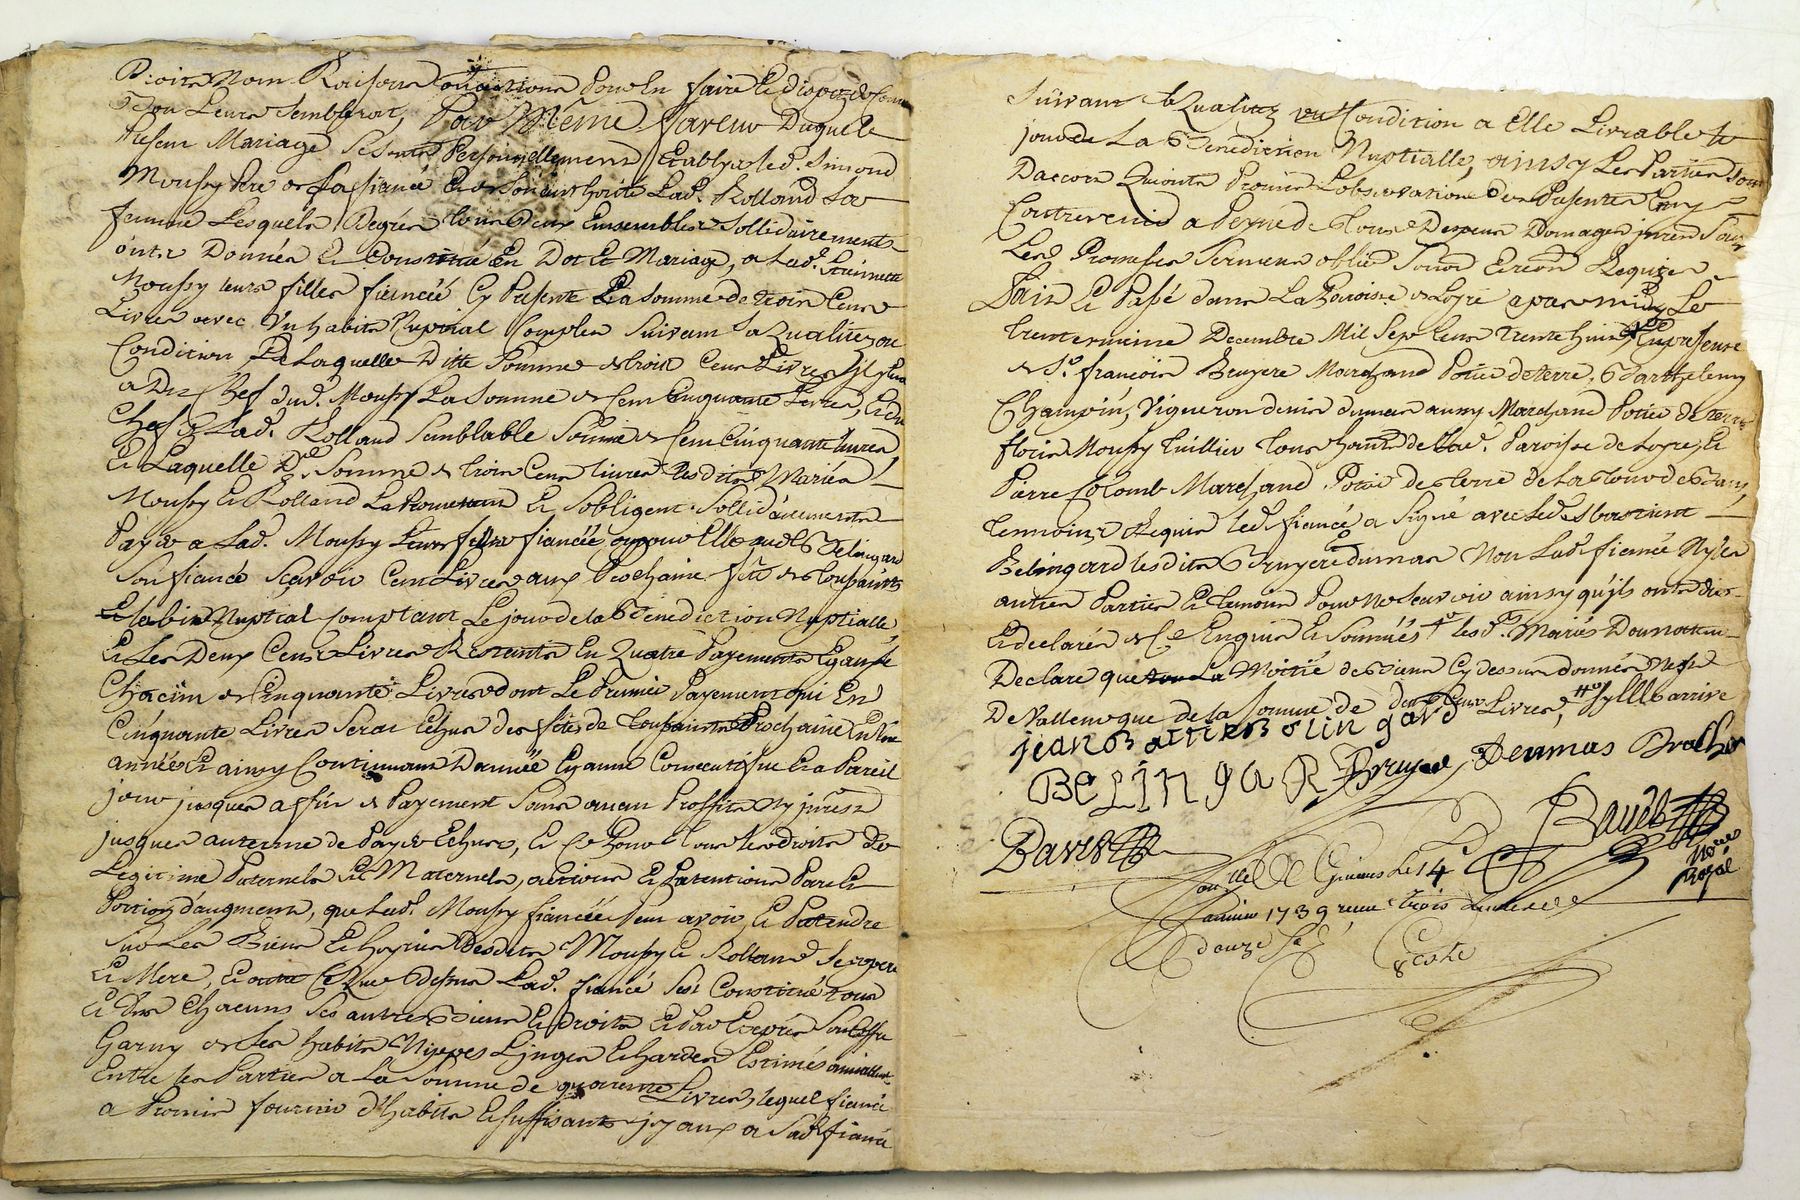 Droits Nom Raisons Et actions Pour En faire Et disposer Comme
Bon Leurs Semblerat, Par Même faveur Duquele
Present Mariage Se sont Personnellement Etablys led. Simond
Moussy Pere de la fiancée Et de Son authorité Lad. Rolland Sa
femme Lesquels Degrés tous Deux Ensembles Sollidairement
ont Donnés Et Constitué En Dot Et Mariage, a Lad.
Moussy leurs filles fiancéé Cy Presente La Somme de trois Cens
Livres avec Un habits Nuptial Complet Suivant Sa Qualitez ou
Condition De Laquelle Ditte Somme de trois Cens Livres
a Du Chef dud. Moussy La Somme de Cent Cinquante Livres, Et du
Chef de Lad. Rolland Semblable Somme de Cent Cinquante livres,
Et Laquelle De Somme de trois Cens livres Lesdits Mariés
Moussy Et Rolland La Promettent Et Sobligent Sollidairements
Payer a Lad. Moussy Leurs fille fiancéé, ou pour Elle aud. Belingard
Son fiancé Scavoir Cent Livres aux Prochaine feste de Toussaints
Et labit Nuptial Comptant Le jour de la Benediction Nuptialle,
Et Les Deux Cens Livres Restants En Quatre Payements Egaux de
Chacun de Cinquante Livres dont Le Premier Payement qui En
Cinquante Livres Serat Echus des fetes de Toussaints Prochaine En Une
années Et ainsy Continuant D'année En année Consecutifve Et a Pareil
jour jusques a fin de Payement Sans aucun Proffits Ny jnterest
jusques au terme de Payer Echus, Et Ce Pour tous Les Droits De
Legitime Paternels Et Maternels, actions Et Pretentions Part Et
Portion daugment, que Lad. Moussy fiancéé Peut avoir Et Pretendre
Sur Les Biens Et hoyries Desdits Moussy Et Rolland Ses Pere
Et Mere, Et outre Ce Que Dessus Lad. fiancé Sest Constitué tous
Et Uns Chacuns Ses autres Biens Et Droits Et Par Exprés Son Coffre
Garny de Ses habits Nippes Linges Et hardes Estimés amiablemt
Entre les Parties a La Somme de quarente Livres, lequel fiancé
a Promis fournir d'habits Et Suffisants joyaux a Sad. fiancé
Suivant Sa Qualitez ou Condition a Elle Livrable le
jour de La Bénédiction Nuptialle, ainsy Les Parties Sont
Daccors Quionts Promis Lobservation Des Presentes Sans y
Contrevenir a Peyne de Tous Depens Domages jnterets Sous
Les Promesses Serment oblig. Soum. Et renon. Requises
Fait Et Passé dans La Paroisse de Loyre apres midy Le
trente unieme Decembre Mil Sept Cens trente huit En presence
de Sr. françois Bruyere Marchand Potier de terre, Barthelemy
Champin, Vigneron denis dumas aussy Marchand Potier de terre
floris Moussy tuillier tous habits. de Lad. Paroisse de Loyre, Et
Pierre Colomb Marchand Potier de terre de La Tour de
temoins Requis led. fiancé a Signé avec Led. Sbastient
Belingard lesdits Bruyere dumas Non Lad. fiancée Ny les
autres Parties Et temoins Pour Ne Scavoir ainsy qu'jls onts dits
Et declarés de Ce Enquis Et Sommés lesd. Mariés Donnatteurs
Declare que La Moitié des Biens Cy dessus donnés Ne Se
De Vallent que de la Somme de deux Cens Livres,
jean Battit Bolin gard
BELINgaR Bruyere, Denmas
Baveb
Bavets
Noere
Royal
Con.lle a Givors Le 14e
janvier 1739 receu trois
douze S.
Coste